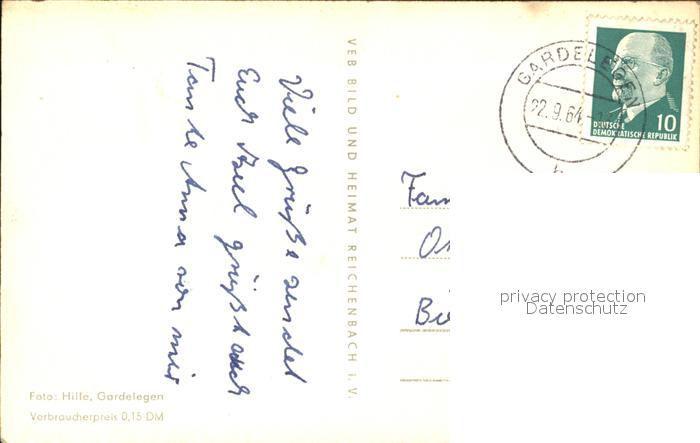 Viele Grüße sendet
Euch Axel grüßt auch
Tante Anna von mir
VEB BILD UND HEIMAT REICHENBACH i. V.
GARDELEGEN
22.9.64
h
10
DEUTSCHE
DEMOKRATISCHE REPUBLIK
Fam
Bi
privacy protection
Datenschutz
Foto: Hille, Gardelegen
Verbraucherpreis 0,15 DM